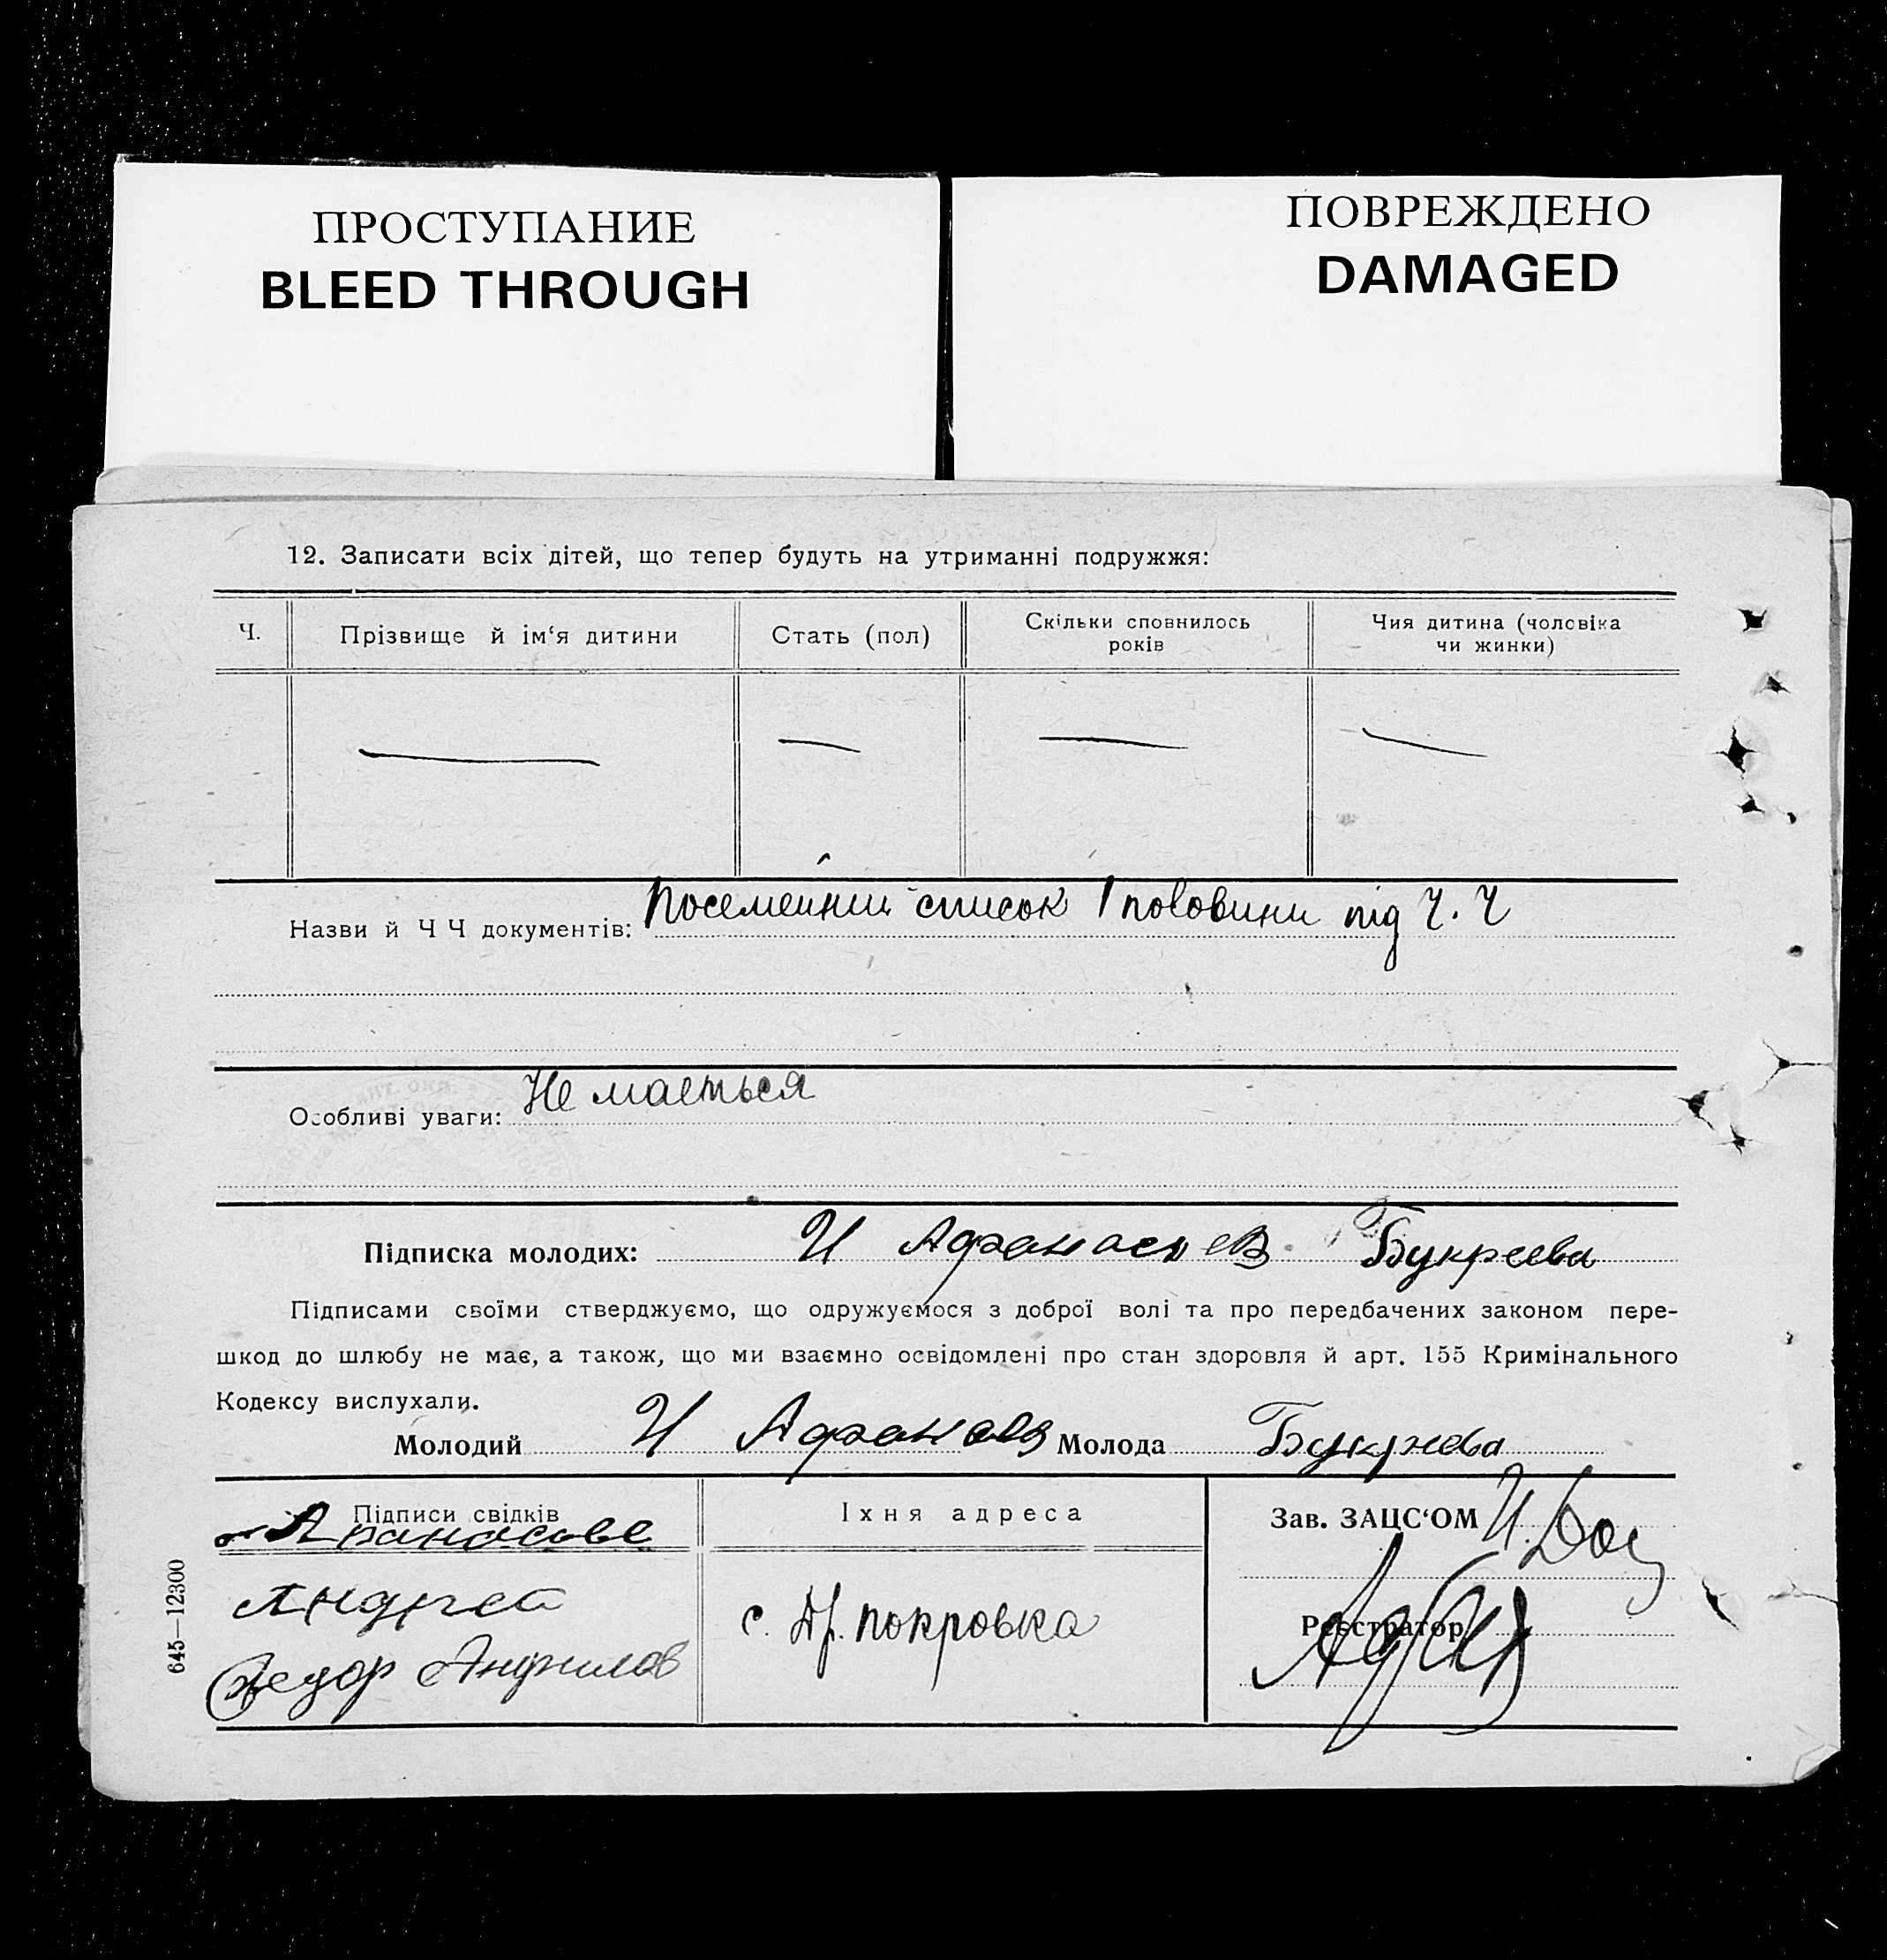 ПРОСТУПАНИЕ
BLEED THROUGH
ПОВРЕЖДЕНО
DAMAGED
12. Записати всіх дітей, що тепер будуть на утриманні подружжя:
Ч.
Прізвище й ім‘я дитини
Стать (пол)
Скільки сповнилось
років
Чия дитина (чоловіка
чи жинки)
Назви й Ч Ч документів: Посемейний список 1 половини під Ч. Ч
Особливі уваги: Не мається
Підписка молодих: И Афанасьев Букреева
Підписами своїми стверджуємо, що одружуємося з доброї волі та про передбачених законом пере-
шкод до шлюбу не має, а також, що ми взаємно освідомлені про стан здоровля й арт. 155 Кримінального
Кодексу вислухали.
Молодий И Молода Букреева
Підписи свідків
Андрей
Федор
Іхня адреса
с. Покровка
Зав. ЗАЦС‘ОМ И.
Реєстратор
645—12300